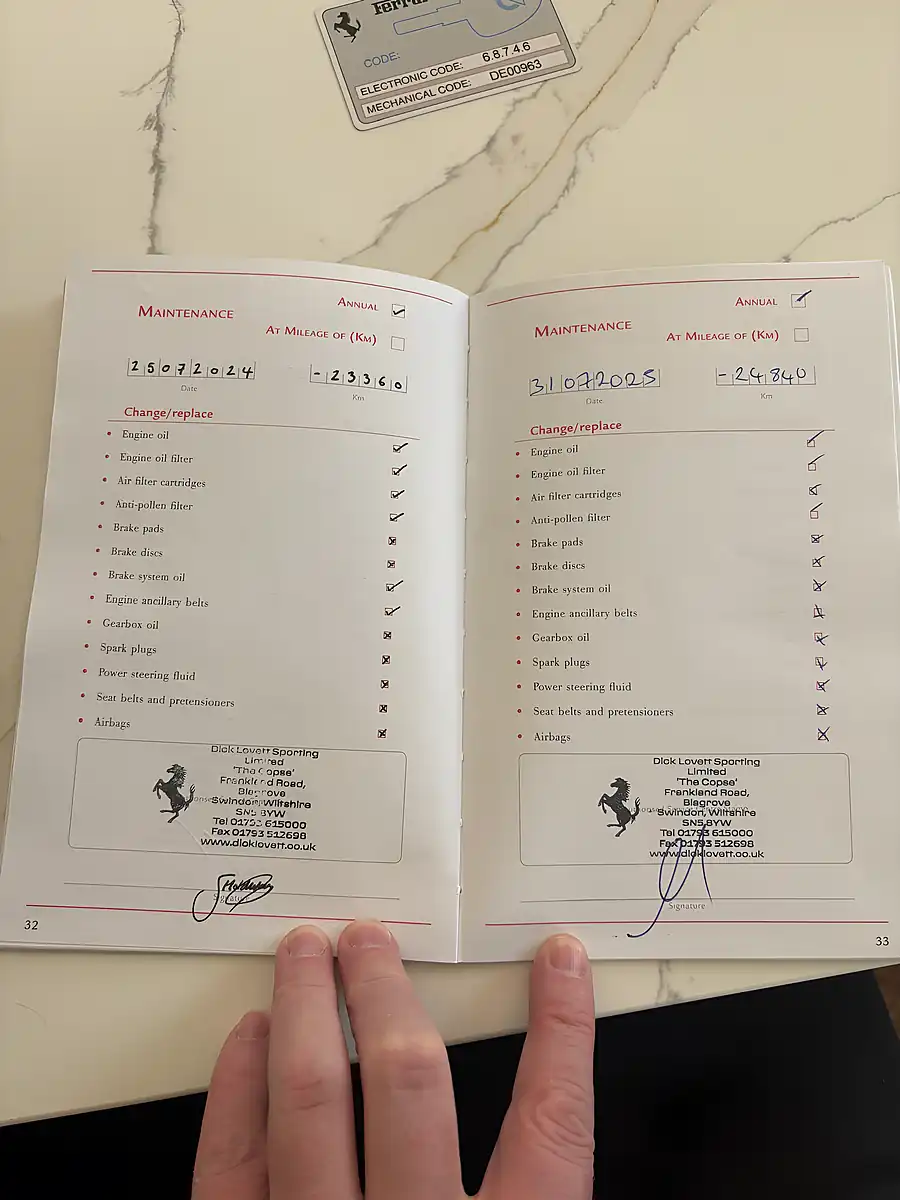 Ferrari
CODE:
ELECTRONIC CODE: 6.8.7.4.6
MECHANICAL CODE: DE00963
MAINTENANCE
ANNUAL
AT MILEAGE OF (KM)
25072024
-23360
Date
Km
Change/replace
Engine oil
Engine oil filter
Air filter cartridges
Anti-pollen filter
Brake pads
Brake discs
Brake system oil
Engine ancillary belts
Gearbox oil
Spark plugs
Power steering fluid
Seat belts and pretensioners
Airbags
Dick Lovett Sporting
Limited
'The Copse'
Frankland Road,
Blagrove
Swindon, Wiltshire
SN5 8YW
Tel 01793 615000
Fax 01793 512698
www.dicklovett.co.uk
Signature
32
MAINTENANCE
ANNUAL
AT MILEAGE OF (KM)
31072025
-24840
Date
Km
Change/replace
Engine oil
Engine oil filter
Air filter cartridges
Anti-pollen filter
Brake pads
Brake discs
Brake system oil
Engine ancillary belts
Gearbox oil
Spark plugs
Power steering fluid
Seat belts and pretensioners
Airbags
Dick Lovett Sporting
Limited
'The Copse'
Frankland Road,
Blagrove
Swindon, Wiltshire
SN5 8YW
Tel 01793 615000
Fax 01793 512698
www.dicklovett.co.uk
Signature
33